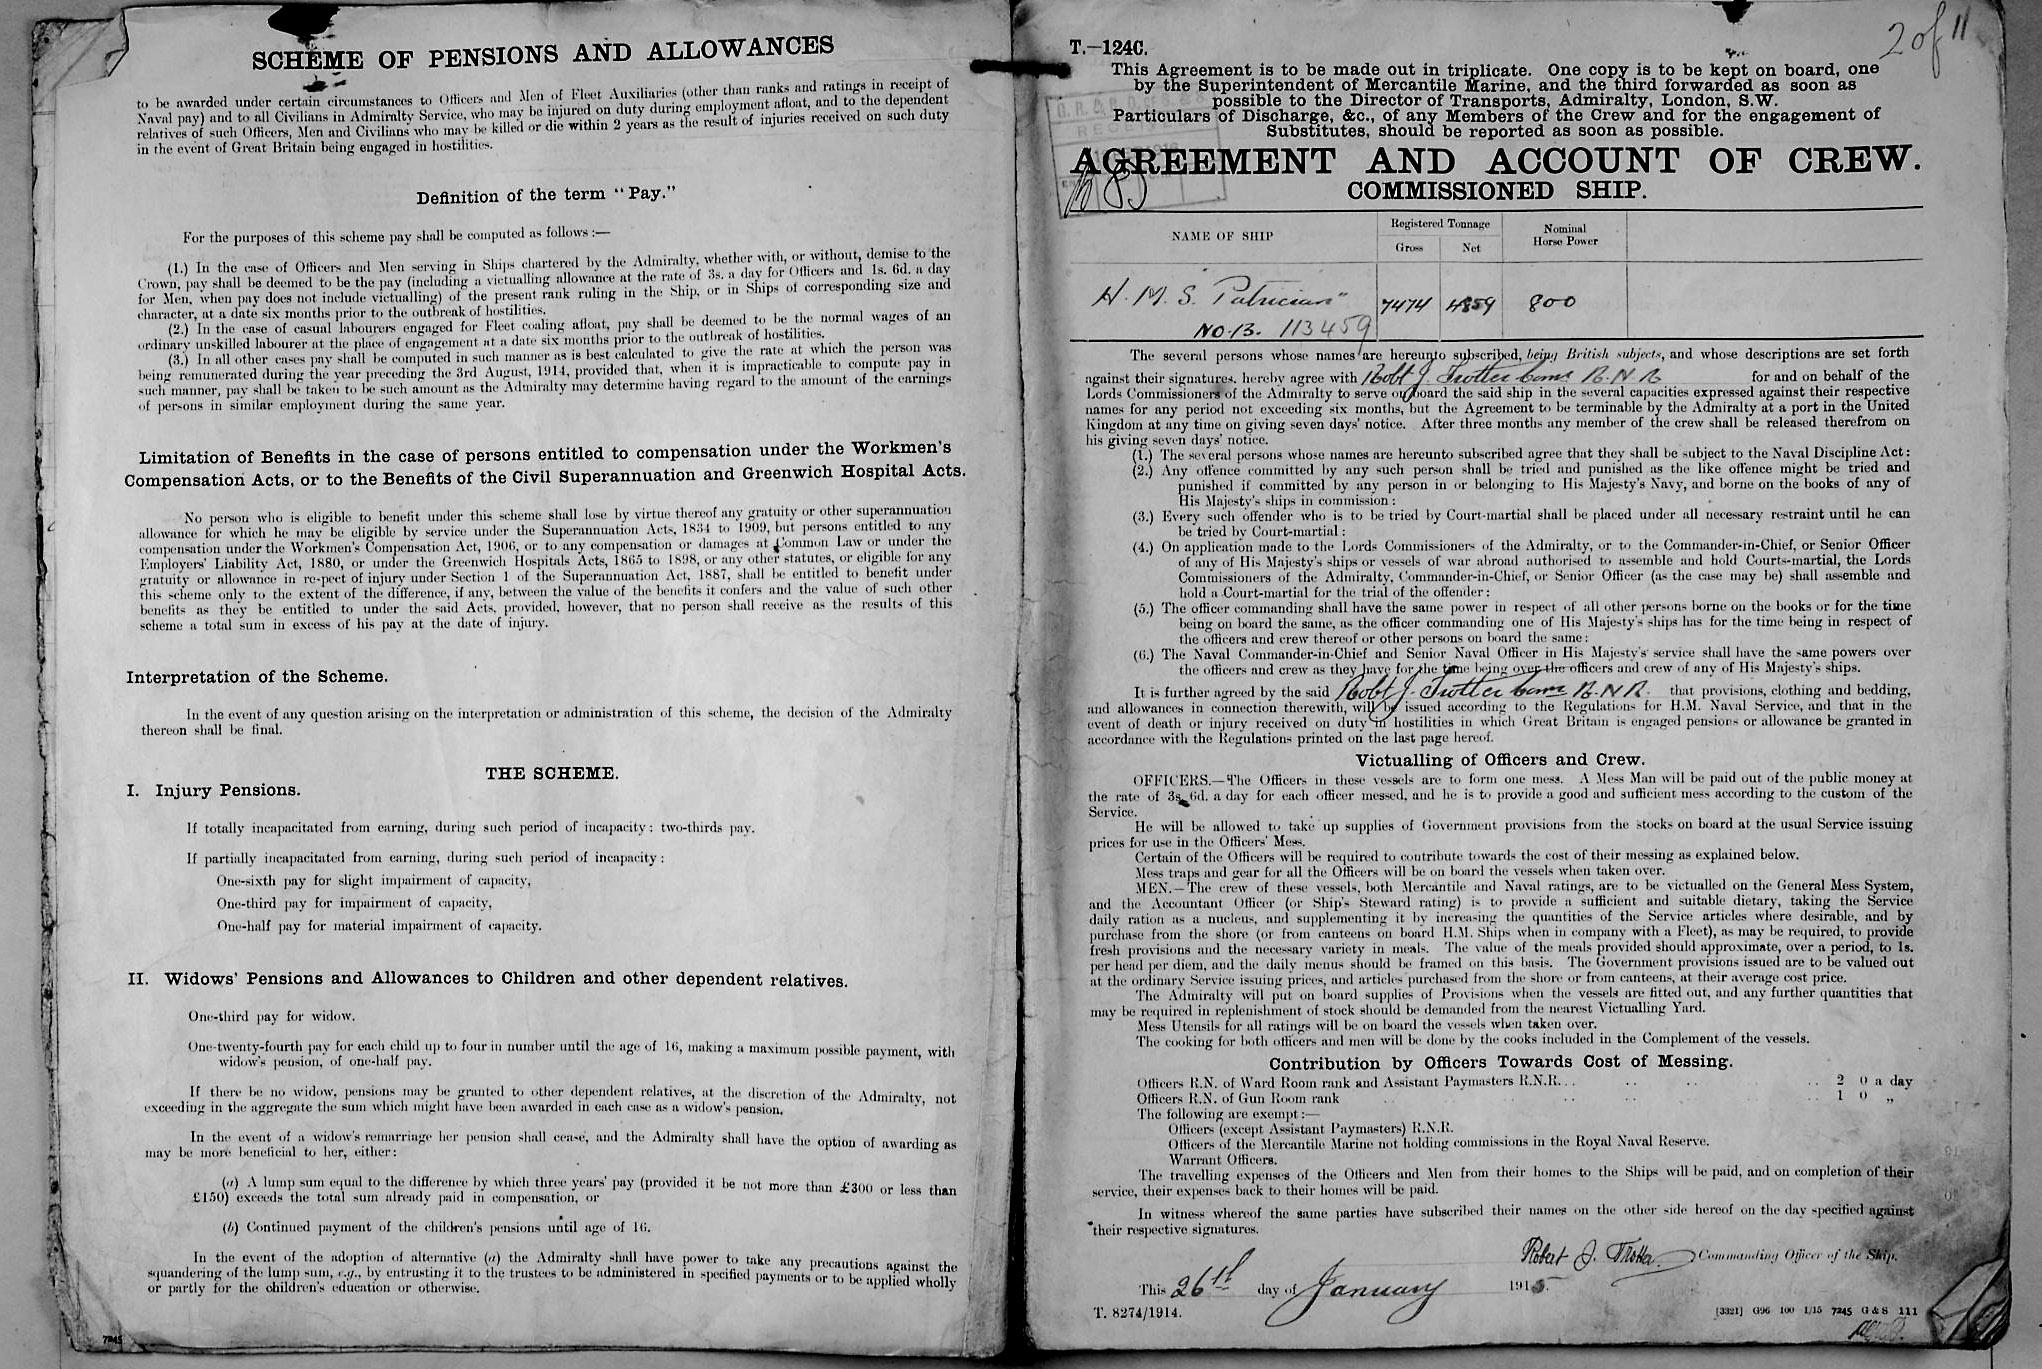 SCHEME OF PENSIONS AND ALLOWANCES
to be awarded under certain circumstances to Officers and Men of Fleet Auxiliaries (other than ranks and ratings in receipt of
Naval pay) and to all Civilians in Admiralty Service, who may be injured on duty during employment afloat, and to the dependent
relatives of such Officers, Men and Civilians who may be killed or die within 2 years as the result of injuries received on such duty
in the event of Great Britain being engaged in hostilities.
Definition of the term "Pay."
For the purposes of this scheme pay shall be computed as follows :—
(1.) In the case of Officers and Men serving in Ships chartered by the Admiralty, whether with, or without, demise to the
Crown, pay shall be deemed to be the pay (including a victualling allowance at the rate of 3s. a day for Officers and 1s. 6d. a day
for Men, when pay does not include victualling) of the present rank ruling in the Ship, or in Ships of corresponding size and
character, at a date six months prior to the outbreak of hostilities.
(2.) In the case of casual labourers engaged for Fleet coaling afloat, pay shall be deemed to be the normal wages of an
ordinary unskilled labourer at the place of engagement at a date six months prior to the outbreak of hostilities.
(3.) In all other cases pay shall be computed in such manner as is best calculated to give the rate at which the person was
being remunerated during the year preceding the 3rd August, 1914, provided that, when it is impracticable to compute pay in
such manner, pay shall be taken to be such amount as the Admiralty may determine having regard to the amount of the earnings
of persons in similar employment during the same year.
Limitation of Benefits in the case of persons entitled to compensation under the Workmen's
Compensation Acts, or to the Benefits of the Civil Superannuation and Greenwich Hospital Acts.
No person who is eligible to benefit under this scheme shall lose by virtue thereof any gratuity or other superannuation
allowance for which he may be eligible by service under the Superannuation Acts, 1834 to 1909, but persons entitled to any
compensation under the Workmen's Compensation Act, 1906, or to any compensation or damages at Common Law or under the
Employers' Liability Act, 1880, or under the Greenwich Hospitals Acts, 1865 to 1898, or any other statutes, or eligible for any
gratuity or allowance in re-pect of injury under Section 1 of the Superannuation Act, 1887, shall be entitled to benefit under
this scheme only to the extent of the difference, if any, between the value of the benefits it confers and the value of such other
benefits as they be entitled to under the said Acts, provided, however, that no person shall receive as the results of this
scheme a total sum in excess of his pay at the date of injury.
Interpretation of the Scheme.
In the event of any question arising on the interpretation or administration of this scheme, the decision of the Admiralty
thereon shall be final.
THE SCHEME.
I. Injury Pensions.
If totally incapacitated from earning, during such period of incapacity: two-thirds pay.
If partially incapacitated from earning, during such period of incapacity:
One-sixth pay for slight impairment of capacity,
One-third pay for impairment of capacity,
One-half pay for material impairment of capacity.
II. Widows' Pensions and Allowances to Children and other dependent relatives.
One-third pay for widow.
One-twenty-fourth pay for each child up to four in number until the age of 16, making a maximum possible payment, with
widow's pension, of one-half pay.
If there be no widow, pensions may be granted to other dependent relatives, at the discretion of the Admiralty, not
exceeding in the aggregate the sum which might have been awarded in each case as a widow's pension.
In the event of a widow's remarriage her pension shall cease, and the Admiralty shall have the option of awarding as
may be more beneficial to her, either:
(a) A lump sum equal to the difference by which three years' pay (provided it be not more than £300 or less than
£150) exceeds the total sum already paid in compensation, or
(b) Continued payment of the children's pensions until age of 16.
In the event of the adoption of alternative (a) the Admiralty shall have power to take any precautions against the
squandering of the lump sum, e.g., by entrusting it to the trustees to be administered in specified payments or to be applied wholly
or partly for the children's education or otherwise.
7245
2 of 11
T.—124C.
This Agreement is to be made out in triplicate. One copy is to be kept on board, one
by the Superintendent of Mercantile Marine, and the third forwarded as soon as
possible to the Director of Transports, Admiralty, London, S.W.
Particulars of Discharge, &c., of any Members of the Crew and for the engagement of
Substitutes, should be reported as soon as possible.
AGREEMENT AND ACCOUNT OF CREW.
COMMISSIONED SHIP.
NAME OF SHIP
Registered Tonnage
Gross
Net
Nominal
Horse Power
H. M. S. "Patrician"
7474
4859
800
NO. 13. 113459
The several persons whose names are hereunto subscribed, being British subjects, and whose descriptions are set forth
against their signatures, hereby agree with Robt J. Trotter Comr R.N.R for and on behalf of the
Lords Commissioners of the Admiralty to serve on board the said ship in the several capacities expressed against their respective
names for any period not exceeding six months, but the Agreement to be terminable by the Admiralty at a port in the United
Kingdom at any time on giving seven days' notice. After three months any member of the crew shall be released therefrom on
his giving seven days' notice.
(1.) The several persons whose names are hereunto subscribed agree that they shall be subject to the Naval Discipline Act:
(2.) Any offence committed by any such person shall be tried and punished as the like offence might be tried and
punished if committed by any person in or belonging to His Majesty's Navy, and borne on the books of any of
His Majesty's ships in commission:
(3.) Every such offender who is to be tried by Court-martial shall be placed under all necessary restraint until he can
be tried by Court-martial:
(4.) On application made to the Lords Commissioners of the Admiralty, or to the Commander-in-Chief, or Senior Officer
of any of His Majesty's ships or vessels of war abroad authorised to assemble and hold Courts-martial, the Lords
Commissioners of the Admiralty, Commander-in-Chief, or Senior Officer (as the case may be) shall assemble and
hold a Court-martial for the trial of the offender:
(5.) The officer commanding shall have the same power in respect of all other persons borne on the books or for the time
being on board the same, as the officer commanding one of His Majesty's ships has for the time being in respect of
the officers and crew thereof or other persons on board the same:
(6.) The Naval Commander-in-Chief and Senior Naval Officer in His Majesty's service shall have the same powers over
the officers and crew as they have for the time being over the officers and crew of any of His Majesty's ships.
It is further agreed by the said Robt J. Trotter Comr R.N.R. that provisions, clothing and bedding,
and allowances in connection therewith, will be issued according to the Regulations for H.M. Naval Service, and that in the
event of death or injury received on duty in hostilities in which Great Britain is engaged pensions or allowance be granted in
accordance with the Regulations printed on the last page hereof.
Victualling of Officers and Crew.
OFFICERS.—The Officers in these vessels are to form one mess. A Mess Man will be paid out of the public money at
the rate of 3s. 6d. a day for each officer messed, and he is to provide a good and sufficient mess according to the custom of the
Service.
He will be allowed to take up supplies of Government provisions from the stocks on board at the usual Service issuing
prices for use in the Officers' Mess.
Certain of the Officers will be required to contribute towards the cost of their messing as explained below.
Mess traps and gear for all the Officers will be on board the vessels when taken over.
MEN.—The crew of these vessels, both Mercantile and Naval ratings, are to be victualled on the General Mess System,
and the Accountant Officer (or Ship's Steward rating) is to provide a sufficient and suitable dietary, taking the Service
daily ration as a nucleus, and supplementing it by increasing the quantities of the Service articles where desirable, and by
purchase from the shore (or from canteens on board H.M. Ships when in company with a Fleet), as may be required, to provide
fresh provisions and the necessary variety in meals. The value of the meals provided should approximate, over a period, to 1s.
per head per diem, and the daily menus should be framed on this basis. The Government provisions issued are to be valued out
at the ordinary Service issuing prices, and articles purchased from the shore or from canteens, at their average cost price.
The Admiralty will put on board supplies of Provisions when the vessels are fitted out, and any further quantities that
may be required in replenishment of stock should be demanded from the nearest Victualling Yard.
Mess Utensils for all ratings will be on board the vessels when taken over.
The cooking for both officers and men will be done by the cooks included in the Complement of the vessels.
Contribution by Officers Towards Cost of Messing.
Officers R.N. of Ward Room rank and Assistant Paymasters R.N.R. .. .. .. .. 2 0 a day
Officers R.N. of Gun Room rank .. .. .. .. 1 0 „
The following are exempt:—
Officers (except Assistant Paymasters) R.N.R.
Officers of the Mercantile Marine not holding commissions in the Royal Naval Reserve.
Warrant Officers.
The travelling expenses of the Officers and Men from their homes to the Ships will be paid, and on completion of their
service, their expenses back to their homes will be paid.
In witness whereof the same parties have subscribed their names on the other side hereof on the day specified against
their respective signatures.
Robert J. Trotter Commanding Officer of the Ship.
This 26th day of January 1915.
T. 8274/1914.
[3321] G96 100 1/15 7245 G & S 111